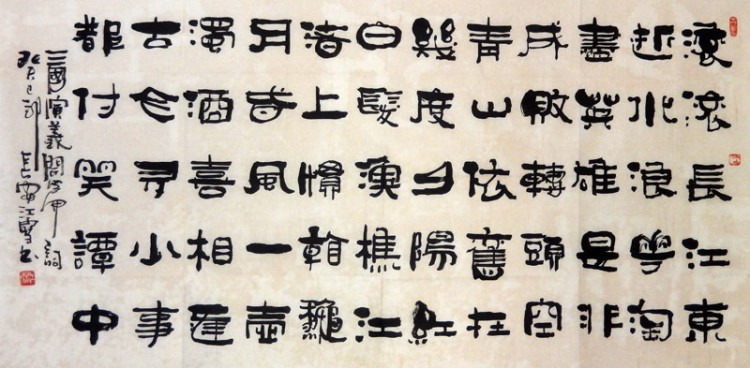 滚滚長江東
逝水浪華淘
盡英雄是非
成敗轉頭空
青山依舊在
幾度夕陽紅
白髮漁樵江
渚上慣看龝
月春風一壺
濁酒喜相逢
古今多少事
都付笑譚中
三國演義開詞
癸巳長安江雪書